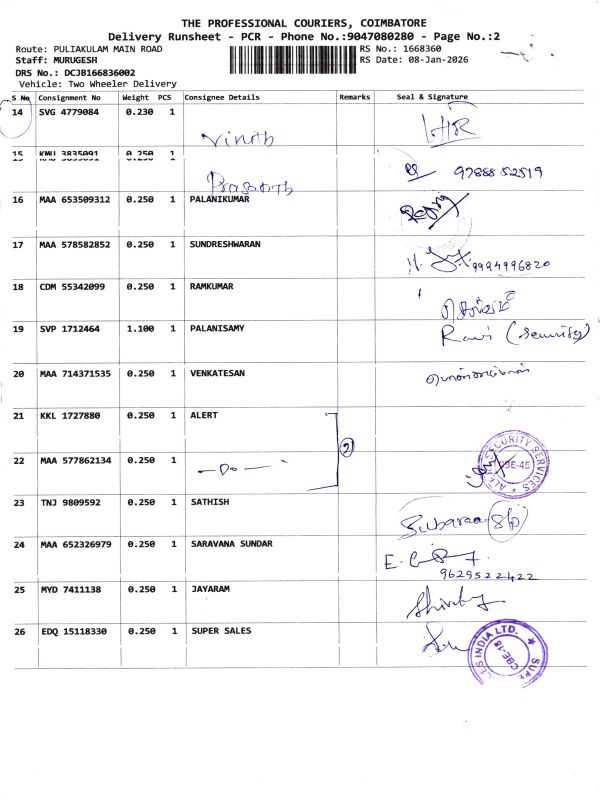 THE PROFESSIONAL COURIERS, COIMBATORE
Delivery Runsheet - PCR - Phone No.:9047080280 - Page No.:2
Route: PULIAKULAM MAIN ROAD RS No.: 1668360
Staff: MURUGESH RS Date: 08-Jan-2026
DRS No.: DCJB166836002
Vehicle: Two Wheeler Delivery
S No Consignment No Weight PCS Consignee Details Remarks Seal & Signature
14 SVG 4779084 0.230 1 Vinoth
15 KMU 3835091 0.250 1 Prasanth 9788852519
16 MAA 653509312 0.250 1 PALANIKUMAR
17 MAA 578582852 0.250 1 SUNDRESHWARAN 9994996820
18 CDM 55342099 0.250 1 RAMKUMAR
19 SVP 1712464 1.100 1 PALANISAMY Ravi (Security)
20 MAA 714371535 0.250 1 VENKATESAN
21 KKL 1727880 0.250 1 ALERT
2
22 MAA 577862134 0.250 1 —Do— SECURITY SERVICES CBE-45
23 TNJ 9809592 0.250 1 SATHISH
24 MAA 652326979 0.250 1 SARAVANA SUNDAR 9629522422
25 MYD 7411138 0.250 1 JAYARAM
26 EDQ 15118330 0.250 1 SUPER SALES INDIA LTD. CBE-18